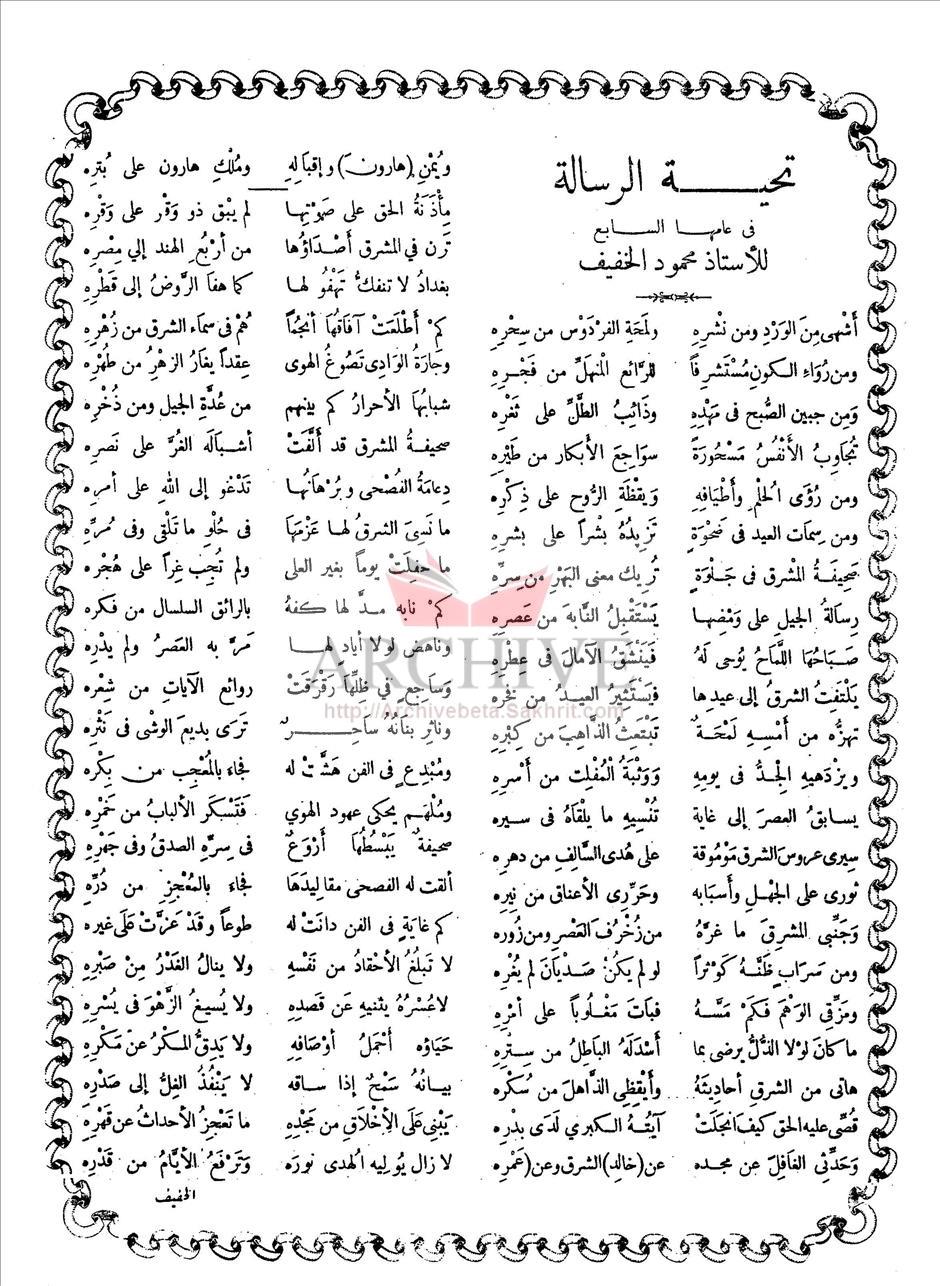 تحية الرسالة
في عامها السابع
للأستاذ محمود الخفيف
أشهى مِنَ الوَرْدِ ومن نشْرِهِ ولمَحَةِ الفِرْدَوْسِ من سِحْرِهِ
ومن رُوَاءِ الكونِ مُسْتَشْرِفًا للرَّائعِ المُنهلِّ من فَجْرِهِ
ومِن جبينِ الصُّبحِ في مَهْدِهِ وذَائبُ الطَّلِّ على ثغْرِهِ
تُجاوِبُ الأَنْفُسُ مَسْحُورَةً سواجِعَ الأبكار من طَيْرِهِ
ومن رُؤَى الحُلمِ وأَطيَافِهِ وَيقْظَةِ الرُّوح على ذِكْرِهِ
ومن سِمَات العيد في ضَحْوَةٍ تَزِيدُهُ بشْراً على بشرِهِ
صَحِيفَةُ المشرق في جَلوَةٍ تُرِيك معنى البَهْرِ من سِرِّهِ
رسالةُ الجيلِ على وَمْضِها يَسْتَقْبِلُ النَّابهَ من عَصرِهِ
صَبَاحُهَا اللَّماحُ يُوحى لَهُ فَيَنْشَقُ الآمالَ في عِطْرِهِ
يَلْتَفِتُ الشرقُ إلى عيدِها فَيَسْتَثِيرُ العيدُ من فَخْرِهِ
تهزُّه من أَمْسِهِ لَمحَةٌ تَبْتَعِثُ الذَّاهِبَ من كِبْرِهِ
ويزدَهيهِ الجِدُّ في يومِهِ وَوَثْبَةُ المُفْلِتِ من أَسْرِهِ
يسابقُ العصرَ إلى غايةٍ تُنْسِيهِ ما يلقَاهُ في سيره
سِيري عروسَ الشرق مَوْمُوقة على هُدى السَّالفِ من دهرِهِ
ثوري على الجَهْلِ وأَسبَابه وحَرِّرِي الأعناق من نِيرِهِ
وجَنِّبي المشرقَ ما غرَّهُ من زُخْرُفِ العَصْرِ ومن زُوره
ومن سَرَابٍ ظَنَّهُ كَوْثَراً لو لم يكُنْ صَدْيَانَ لم يُغْرِهِ
ومَزِّقي الوَهْمَ فكَمْ مَسَّهُ فبَاتَ مَغْلُوباً على أَمْرِهِ
ما كانَ لوْلا الذُّلُّ يرضى بما أَسْدَلَهُ البَاطِلُ من سِتْرِهِ
هاتي من الشرقِ أحاديثَهُ وأَيْقِظِي الذَّاهلَ من سُكْرِه
قُصِّي عليهِ الحق كيفَ انجَلَتْ آيَتُهُ الكبرى لَدَى بدْرِهِ
وَحَدِّثي الغافِلَ عن مجده عن (خالِد) الشرق وعن (عَمْرِهِ)
ويُمْنِ (هارونَ) وإقبالِهِ ومُلْكِ هارون على بُترِهِ
مِأْذَنَةُ الحق على صَوْتِها لم يبْق ذو وَقْرٍ على وَقْرِهِ
تَرن في المشرقِ أَصْدَاؤُها من أَرْبُعِ الهند إلى مِصْرِهِ
بغدادُ لا تنفكُّ تَهْفُو لها كما هفا الرَّوضُ إلى قَطْرِهِ
كمْ أَطْلَعَتْ آفاقُهَا أَنجُماً هُمْ في سماء الشرق من زُهْرِهِ
وجَارَةُ الوَادِي تَصُوغُ الهوى عِقداً يَغَارُ الزهْرُ من طُهْرِهِ
شبابُهَا الأحرارُ كم بينهم من عُدَّةِ الجيل ومن ذُخْرِهِ
صحيفةُ المشرقِ قد أَلَّفَتْ أشبَالَه الغُرَّ على نَصرِهِ
دِعامَةُ الفُصْحَى وبُرْهَانُها تَدْعُو إلى اللهِ على أمرِهِ
ما نَسِىَ الشرقُ لها عَزْمَهَا في حُلوِ ما تَلْقَى وفي مُرِّهِ
ما حَفِلَتْ يوماً بغير العلى ولم تُجِب غِرًّا على هُجْرِهِ
كمْ نابهٍ مدَّ لها كفهُ بالرائق السلسال من فكره
وناهضٍ لولا أيادٍ لها مَرَّ به العَصرُ ولم يدْرِهِ
وسَاجعٍ في ظلِّها رَقْرَقَتْ روائع الآيَاتِ من شِعْرِهِ
وناثرٍ بنَانُهُ سَاحِرٌ تَرَى بديعَ الوشْى في نَثْرِهِ
ومُبْدِعٍ في الفن هَشَّتْ له فجاء بالمُعْجِبِ من بِكْرِهِ
ومُلْهَمٍ يحكى عهود الهوى فَتَسْكَر الألبابُ من خَمْرِهِ
صحيفةٌ يَبْسُطُهَا أَرْوَعُ في سِرِّهِ الصدقُ وفى جَهْرِهِ
ألقت له الفصحى مقاليدَهَا فجاء بالمُعْجِزِ من دُرِّهِ
كم غايَةٍ في الفن دانَتْ له طوعاً وقدْ عَزَّتْ عَلَى غيرِهِ
لا تَبلغُ الأحْقادُ من نَفْسِهِ ولا ينالُ الغَدْرُ مِنْ صَبْرِهِ
لا عُسْرُهُ يثنيهِ عن قصدِهِ ولا يُسيغُ الزَّهْوَ في يُسْرِهِ
حَيَاؤه أَجْملُ أَوْصَافِهِ ولا يَدِقُّ المكْرُ عن مَكْرِهِ
بيانُهُ سَمْحٌ إذا ساقه لا يَنْفُذُ الغِلُّ إلى صَدْرِهِ
يَبْنى عَلَى الأَخْلاقِ من مَجْدِهِ ما تَعْجِزُ الأحداثُ عن قَهْرِهِ
لا زال يُولِيه الهدى نورَه وَتَرْفَعُ الأيَّامُ من قَدْرِهِ
الخفيف
ARCHIVE
http://Archivebeta.Sakhrit.com